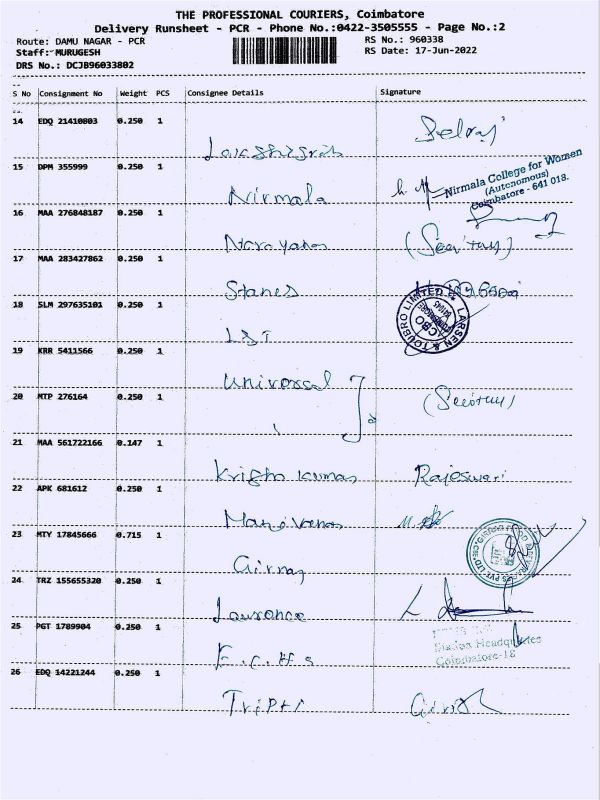 THE PROFESSIONAL COURIERS, Coimbatore
Delivery Runsheet - PCR - Phone No.:0422-3505555 - Page No.:2
Route: DAMU NAGAR - PCR RS No.: 960338
Staff: MURUGESH RS Date: 17-Jun-2022
DRS No.: DCJB96033802
S No Consignment No Weight PCS Consignee Details Signature
14 EDQ 21410803 0.250 1
15 DPM 355999 0.250 1
Nirmala Nirmala College for Women
(Autonomous)
Coimbatore - 641 018.
16 MAA 276848187 0.250 1
Narayanan
17 MAA 283427862 0.250 1
Stanes
18 SLM 297635101 0.250 1
L&T LARSEN & TOUBRO LIMITED
19 KRR 5411566 0.250 1
Universal
20 MTP 276164 0.250 1
21 MAA 561722166 0.147 1
Krishna Kumar Rajeswari
22 APK 681612 0.250 1
23 MTY 17845666 0.715 1
24 TRZ 155655320 0.250 1
Lawrence
25 PGT 1789904 0.250 1
Station Headquarters
Coimbatore-18
26 EDQ 14221244 0.250 1
Tripti